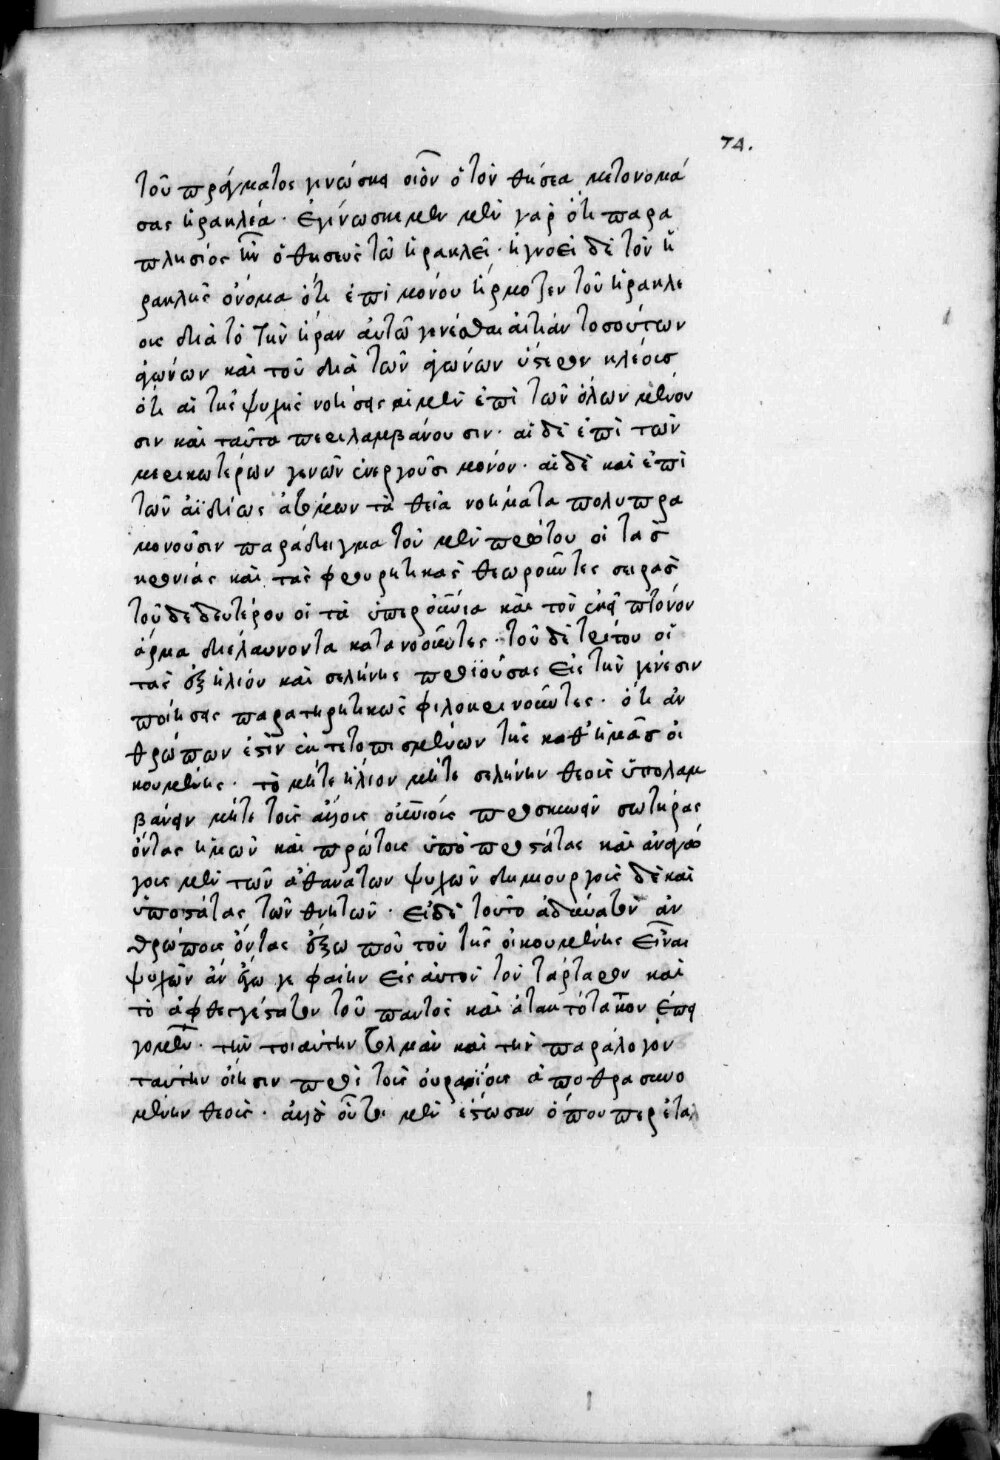 74.
τοῦ πράγματος γινώσκει οἷον ὁ τὸν θησέα μετονομά
σας ἡρακλέα· ἐγίνωσκε μὲν γὰρ ὅτι παρα
πλήσιος ἦν ὁ θησεὺς τῶ ἡρακλεῖ· ἠγνόει δὲ τὸν ἡ
ρακλῆς ὄνομα ὅτι ἐπὶ μόνου ἥρμοζεν τοῦ ἡρακλέ
ους διὰ τὸ τὴν ἥραν αὐτῶ γενέσθαι αἰτίαν τοσούτων
ἀγώνων καὶ τοῦ διὰ τῶν ἀγώνων ὕστερον κλέους
ὅτι αἱ τῆς ψυχῆς νοήσεις αἱ μὲν ἐπὶ τῶν ὅλων μένου
σιν καὶ ταῦτα περιλαμβάνουσιν· αἱ δὲ ἐπὶ τῶν
μερικωτέρων γενῶν ἐνεργοῦσι μόνον· αἱ δὲ καὶ ἐπὶ
τῶν ἀϊδίως ἀτόμων τὰ θεῖα νοήματα πολυπρα
μονοῦσιν παράδειγμα τοῦ μὲν πρώτου οἱ τὰς
κρονίας καὶ τὰς φρουρητικὰς θεωροῦντες σειρὰς
τοῦ δὲ δευτέρου οἱ τὰ ὑπερουράνια καὶ τὸν ἐκεῖ πτηνὸν
ἅρμα διελαύνοντα κατανοοῦντες· τοῦ δὲ τρίτου οἱ
τὰς ἐξ ἡλίου καὶ σελήνης προϊούσας εἰς τὴν γένεσιν
ποιήσεις παρατηρητικῶς φιλοκρινοῦντες· ὅτι ἀν
θρώπων ἐστὶν ἐκτετοπισμένων τῆς καθ' ἡμᾶς οἰ
κουμένης· τὸ μήτε ἥλιον μήτε σελήνην θεοὺς ὑπολαμ
βάνειν μήτε τοῖς ἄλλοις οὐρανίοις προσκυνεῖν σωτῆρας
ὄντας ἡμῶν καὶ πρώτους ὑποπροστάτας καὶ ἀναγω
γοὺς μὲν τῶν ἀθανάτων ψυχῶν δημιουργοὺς δὲ καὶ
ὑποστάτας τῶν θνητῶν· εἰ δὲ τοῦτο ἀδύνατον ἀν
θρώπους ὄντας ἔξω που τὸν τῆς οἰκουμένης εἶναι
ψυχῶν ἂν ἔγωγε φαίην εἰς αὐτὸν τὸν τάρταρον καὶ
τὸ ἀφθεγγέστατον τοῦ παντὸς καὶ ἀτακτότατον ἐπει
γομένων· τὴν τοιαύτην τόλμαν καὶ τὴν παράλογον
ταύτην οἴησιν περὶ τοὺς οὐρανίους ἀποθρασυνο
μένην θεούς· ἀλλ' οὗτοι μὲν ἔστωσαν ὅπου περ ἐτά